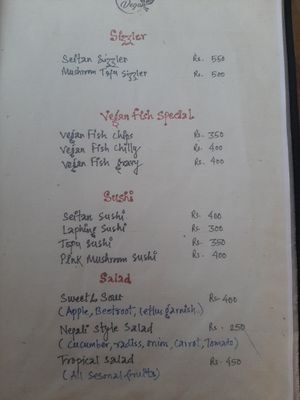 Vegan
Sizzler
Seitan Sizzler Rs. 550
Mushroom Tofu Sizzler Rs. 500
Vegan Fish Special
Vegan Fish Chips Rs. 350
Vegan Fish Chilly Rs. 400
Vegan Fish gravy Rs. 400
Sushi
Seitan Sushi Rs. 400
Laphing Sushi Rs. 300
Tofu Sushi Rs. 350
Pink Mushroom Sushi Rs. 400
Salad
Sweet & Sour Rs. 400
(Apple, Beetroot, Lettuc garnish..)
Nepali Style Salad Rs. 250
(Cucumber, radiss, onion, Carrot, Tomato)
Tropical Salad Rs. 450
(All Sesonal fruits)